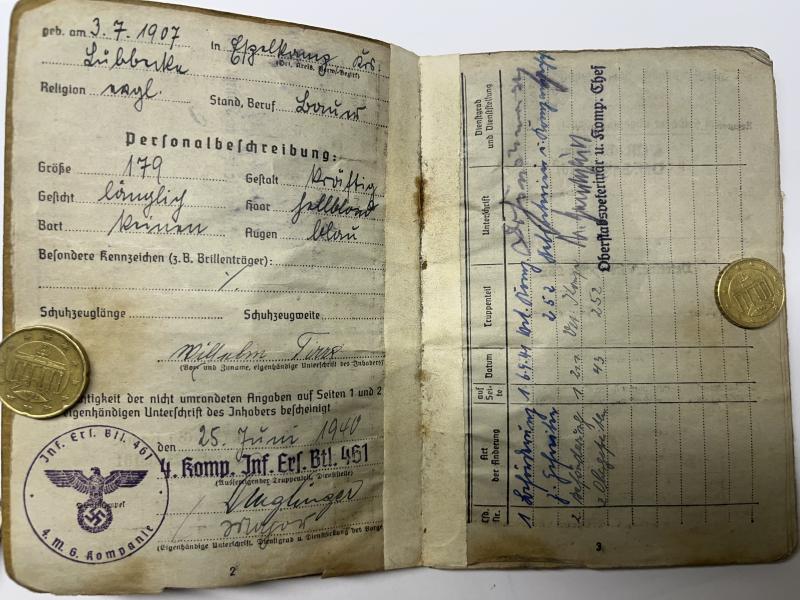 geb. am 3. 7. 1907 in Espelkamp Krs.
(Ort, Kreis, Verw.-Bezirk)
Lübbecke
Religion evgl. Stand, Beruf Bauer
Personalbeschreibung:
Größe 179 Gestalt kräftig
Gesicht länglich Haar hellblond
Bart keinen Augen blau
Besondere Kennzeichen (z. B. Brillenträger):
Schuhzeuglänge Schuhzeugweite
Wilhelm
(Vor- und Zuname, eigenhändige Unterschrift des Inhabers)
tigkeit der nicht umrandeten Angaben auf Seiten 1 und 2
eigenhändigen Unterschrift des Inhabers bescheinigt
den 25. Juni 1940
4. Komp. Inf. Ers. Btl. 461
(Ausfertigender Truppenteil, Dienststelle)
Major
(Eigenhändige Unterschrift, Dienstgrad u. Dienststellung des Vorge
Inf. Ers. Btl. 461
4. M. G. Kompanie
2
Lfd. Nr. Art der Änderung auf Seite Datum Truppenteil Unterschrift Dienstgrad und Dienststellung
1 Beförderung 1 1.6.9.41 Vet. Komp.
z. Gefreiter 252
2 Beförderung 1 Vet. Komp.
z. Obergefr. 43 252
Oberstabsveterinär u. Komp. Chef
3